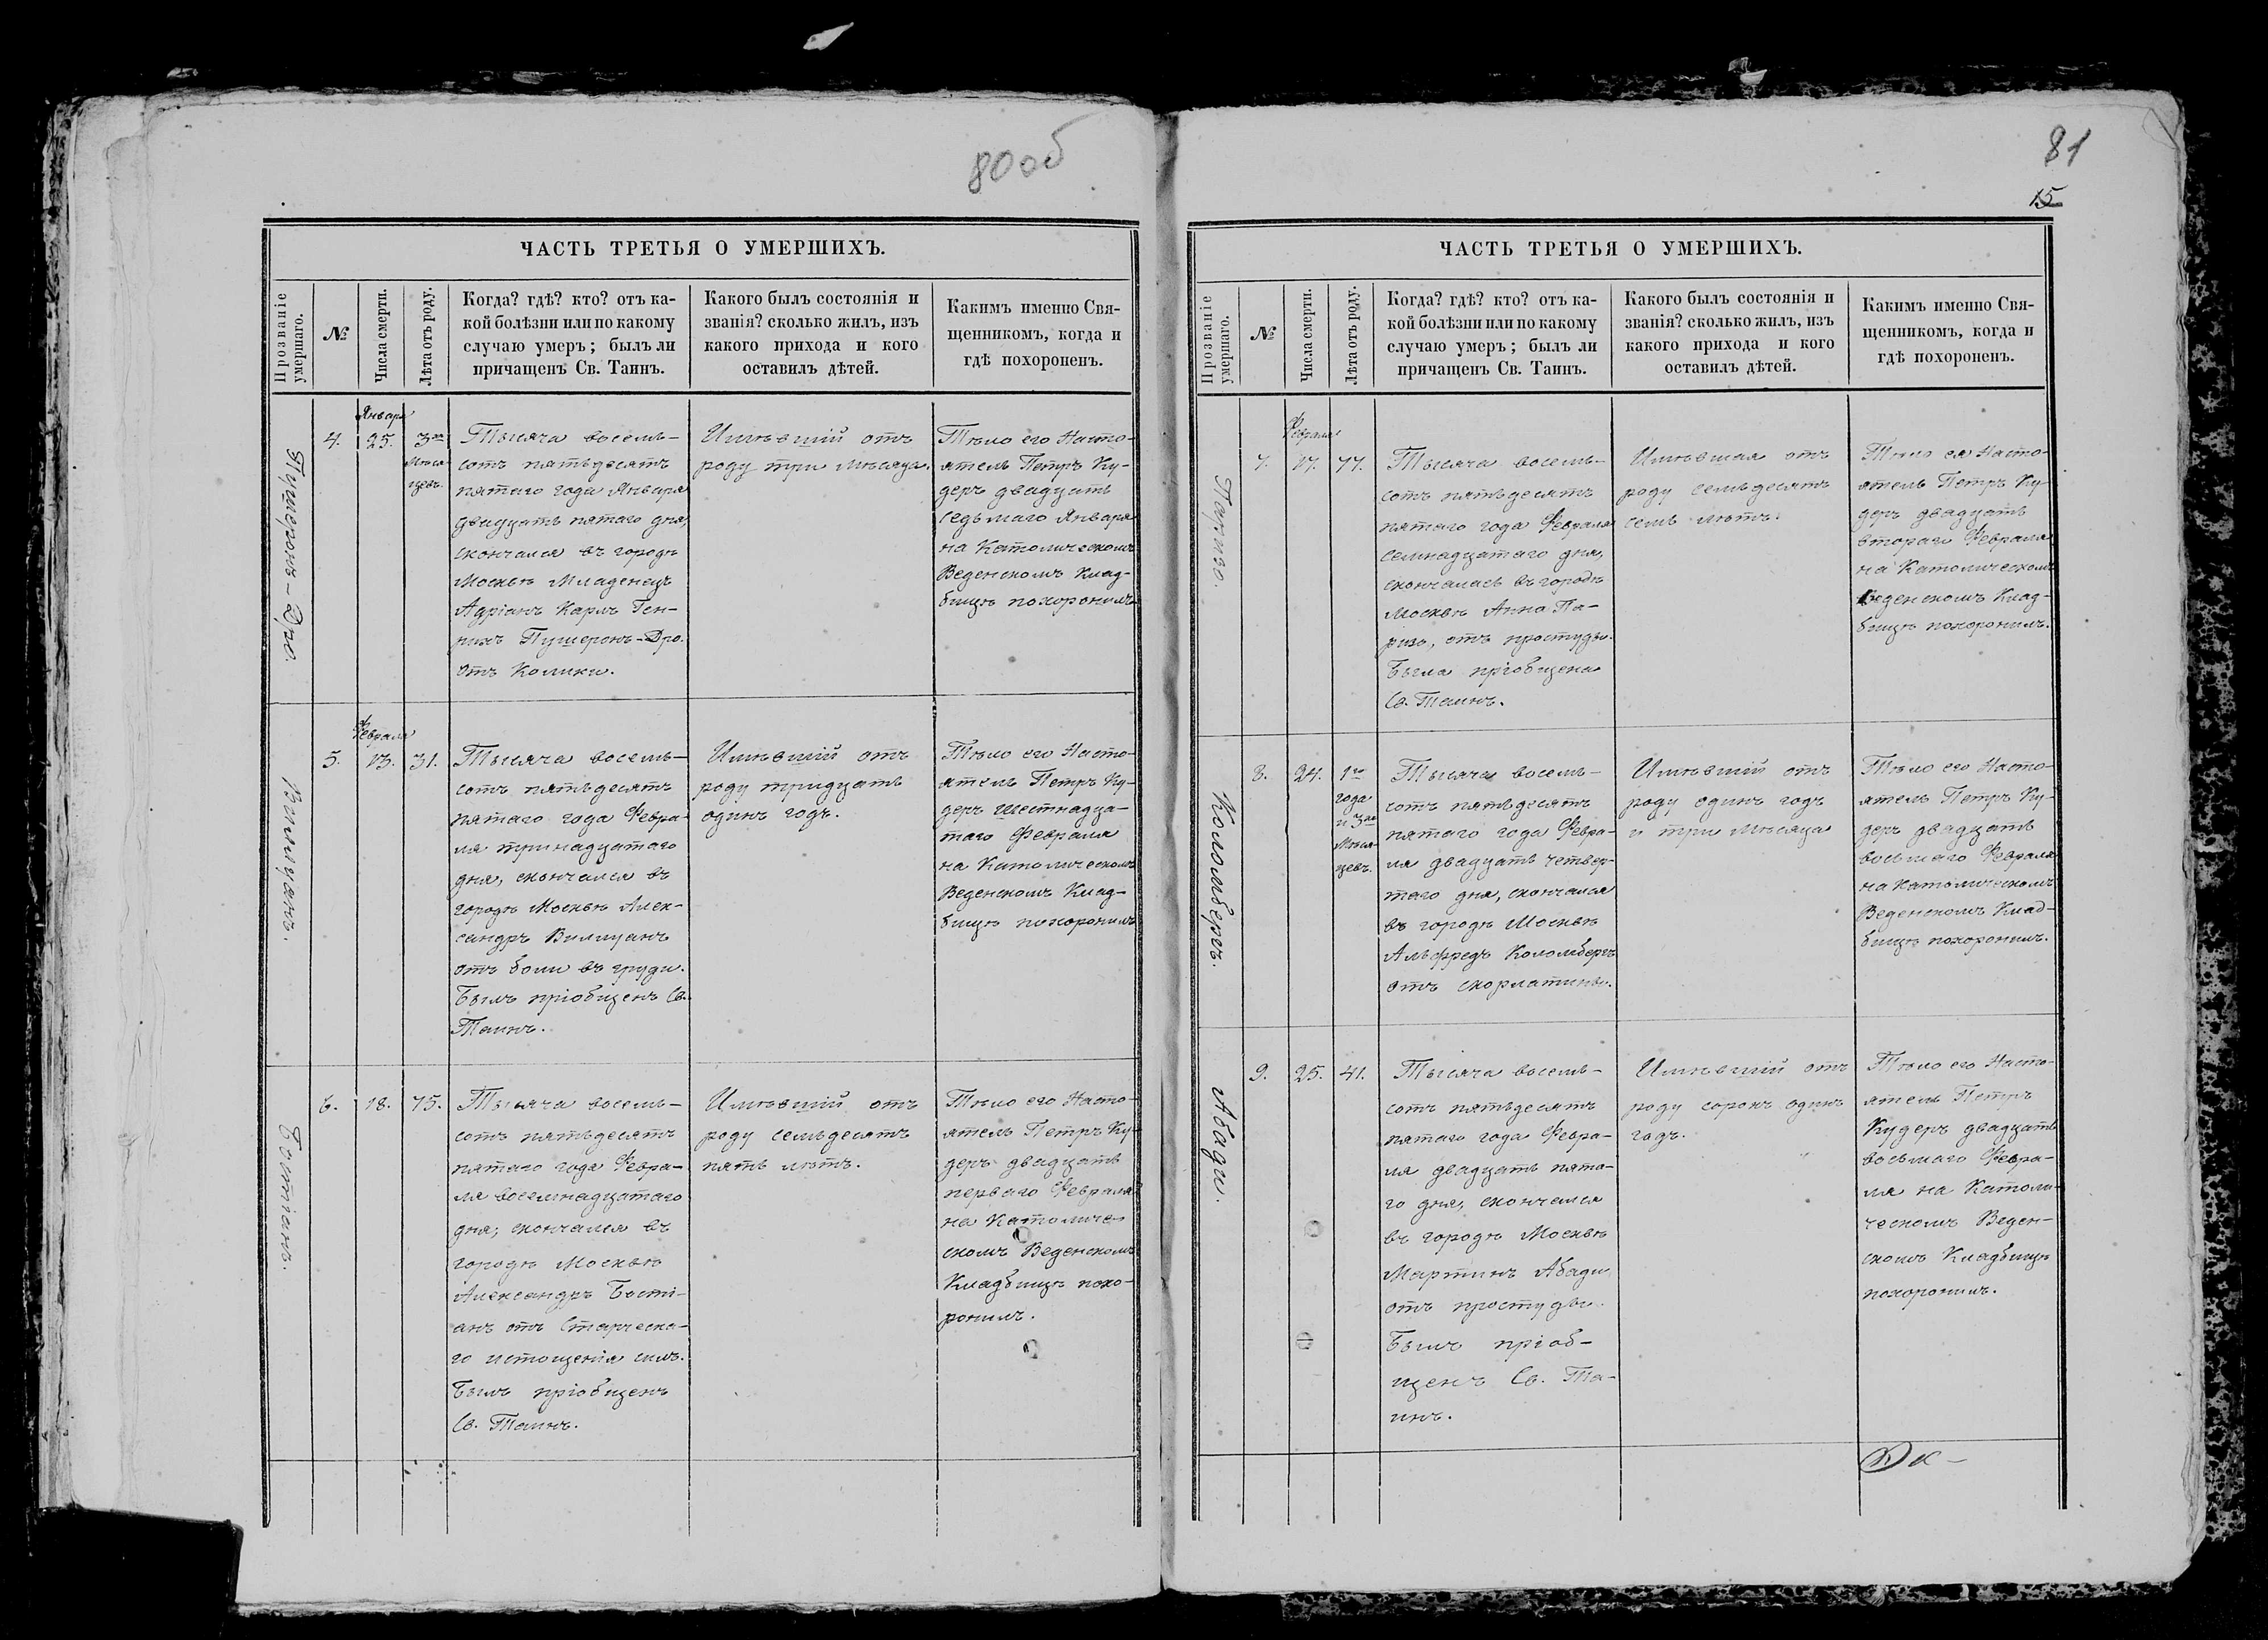 80 об
ЧАСТЬ ТРЕТЬЯ О УМЕРШИХЪ.
Прозваніе
умершаго.
№
Числа смерти.
Лѣта отъ роду.
Когда? гдѣ? кто? отъ ка-
кой болѣзни или по какому
случаю умеръ; былъ ли
причащенъ Св. Таинъ.
Какого былъ состоянія и
званія? сколько жилъ, изъ
какого прихода и кого
оставилъ дѣтей.
Какимъ именно Свя-
щенникомъ, когда и
гдѣ похороненъ.
Пушеронъ-Дро.
4.
Января
25.
3хъ
Мѣся-
цевъ.
Тысяча восемь-
сотъ пятьдесятъ
пятаго года Января
двадцать пятаго дня,
скончался въ городѣ
Москвѣ Младенецъ
Адріанъ Карлъ Ген-
рихъ Пушеронъ-Дро.
отъ Колики.
Имѣвшій отъ
роду три мѣсяца.
Тѣло его Насто-
ятель Петръ Ку-
деръ двадцать
седьмаго Января
на Католическомъ
Веденскомъ Клад-
бищѣ похоронилъ.
Виллуанъ.
5.
Февраля
13.
31.
Тысяча восемь-
сотъ пятьдесятъ
пятаго года Февра-
ля тринадцатаго
дня, скончался въ
городѣ Москвѣ Алек-
сандръ Виллуанъ
отъ боли въ груди.
Былъ пріобщенъ Св.
Таинъ.
Имѣвшій отъ
роду тридцать
одинъ годъ.
Тѣло его Насто-
ятель Петръ Ку-
деръ Шестнадца-
таго Февраля
на Католическомъ
Веденскомъ Клад-
бищѣ похоронилъ
Бостіанъ.
6.
18.
75.
Тысяча восемь-
сотъ пятьдесятъ
пятаго года Февра-
ля восемнадцатаго
дня, скончался въ
городѣ Москвѣ
Александръ Бості-
анъ отъ Старческа-
го истощенія силъ.
Былъ пріобщенъ
Св. Таинъ.
Имѣвшій отъ
роду семьдесятъ
пять лѣтъ.
Тѣло его Насто-
ятель Петръ Ку-
деръ двадцать
перваго Февраля
на Католиче-
скомъ Веденскомъ
Кладбищѣ похо-
ронилъ.
81
15
ЧАСТЬ ТРЕТЬЯ О УМЕРШИХЪ.
Прозваніе
умершаго.
№
Числа смерти.
Лѣта отъ роду.
Когда? гдѣ? кто? отъ ка-
кой болѣзни или по какому
случаю умеръ; былъ ли
причащенъ Св. Таинъ.
Какого былъ состоянія и
званія? сколько жилъ, изъ
какого прихода и кого
оставилъ дѣтей.
Какимъ именно Свя-
щенникомъ, когда и
гдѣ похороненъ.
7.
Февраля
17.
77.
Тысяча восемь-
сотъ пятьдесятъ
пятаго года Февраля
семнадцатаго дня,
скончалась въ городѣ
Москвѣ Анна Па-
ризо, отъ простуды.
Была пріобщена
Св. Таинъ.
Имѣвшая отъ
роду семьдесятъ
семь лѣтъ.
Тѣло ея Насто-
ятель Петръ Ку-
деръ двадцать
втораго Февраля
на Католическомъ
Веденскомъ Клад-
бищѣ похоронилъ.
Коломбергъ.
8.
24.
1го
года
и 3хъ
Мѣся-
цевъ.
Тысяча восемь-
сотъ пятьдесятъ
пятаго года Февра-
ля двадцать четвер-
таго дня, скончался
въ городѣ Москвѣ
Альфредъ Коломбергъ
отъ скорлатины.
Имѣвшій отъ
роду одинъ годъ
и три мѣсяца
Тѣло его Насто-
ятель Петръ Ку-
деръ двадцать
восьмаго Февраля
на Католическомъ
Веденскомъ Клад-
бищѣ похоронилъ.
Абади.
9.
25.
41.
Тысяча восемь-
сотъ пятьдесятъ
пятаго года Февра-
ля двадцать пята-
го дня, скончался
въ городѣ Москвѣ
Мартинъ Абади
отъ простуды.
Былъ пріоб-
щенъ Св. Та-
инъ.
Имѣвшій отъ
роду сорокъ одинъ
годъ.
Тѣло его Насто-
ятель Петръ
Кудеръ двадцать
восьмаго Февра-
ля на Католи-
ческомъ Веден-
скомъ Кладбищѣ
похоронилъ.